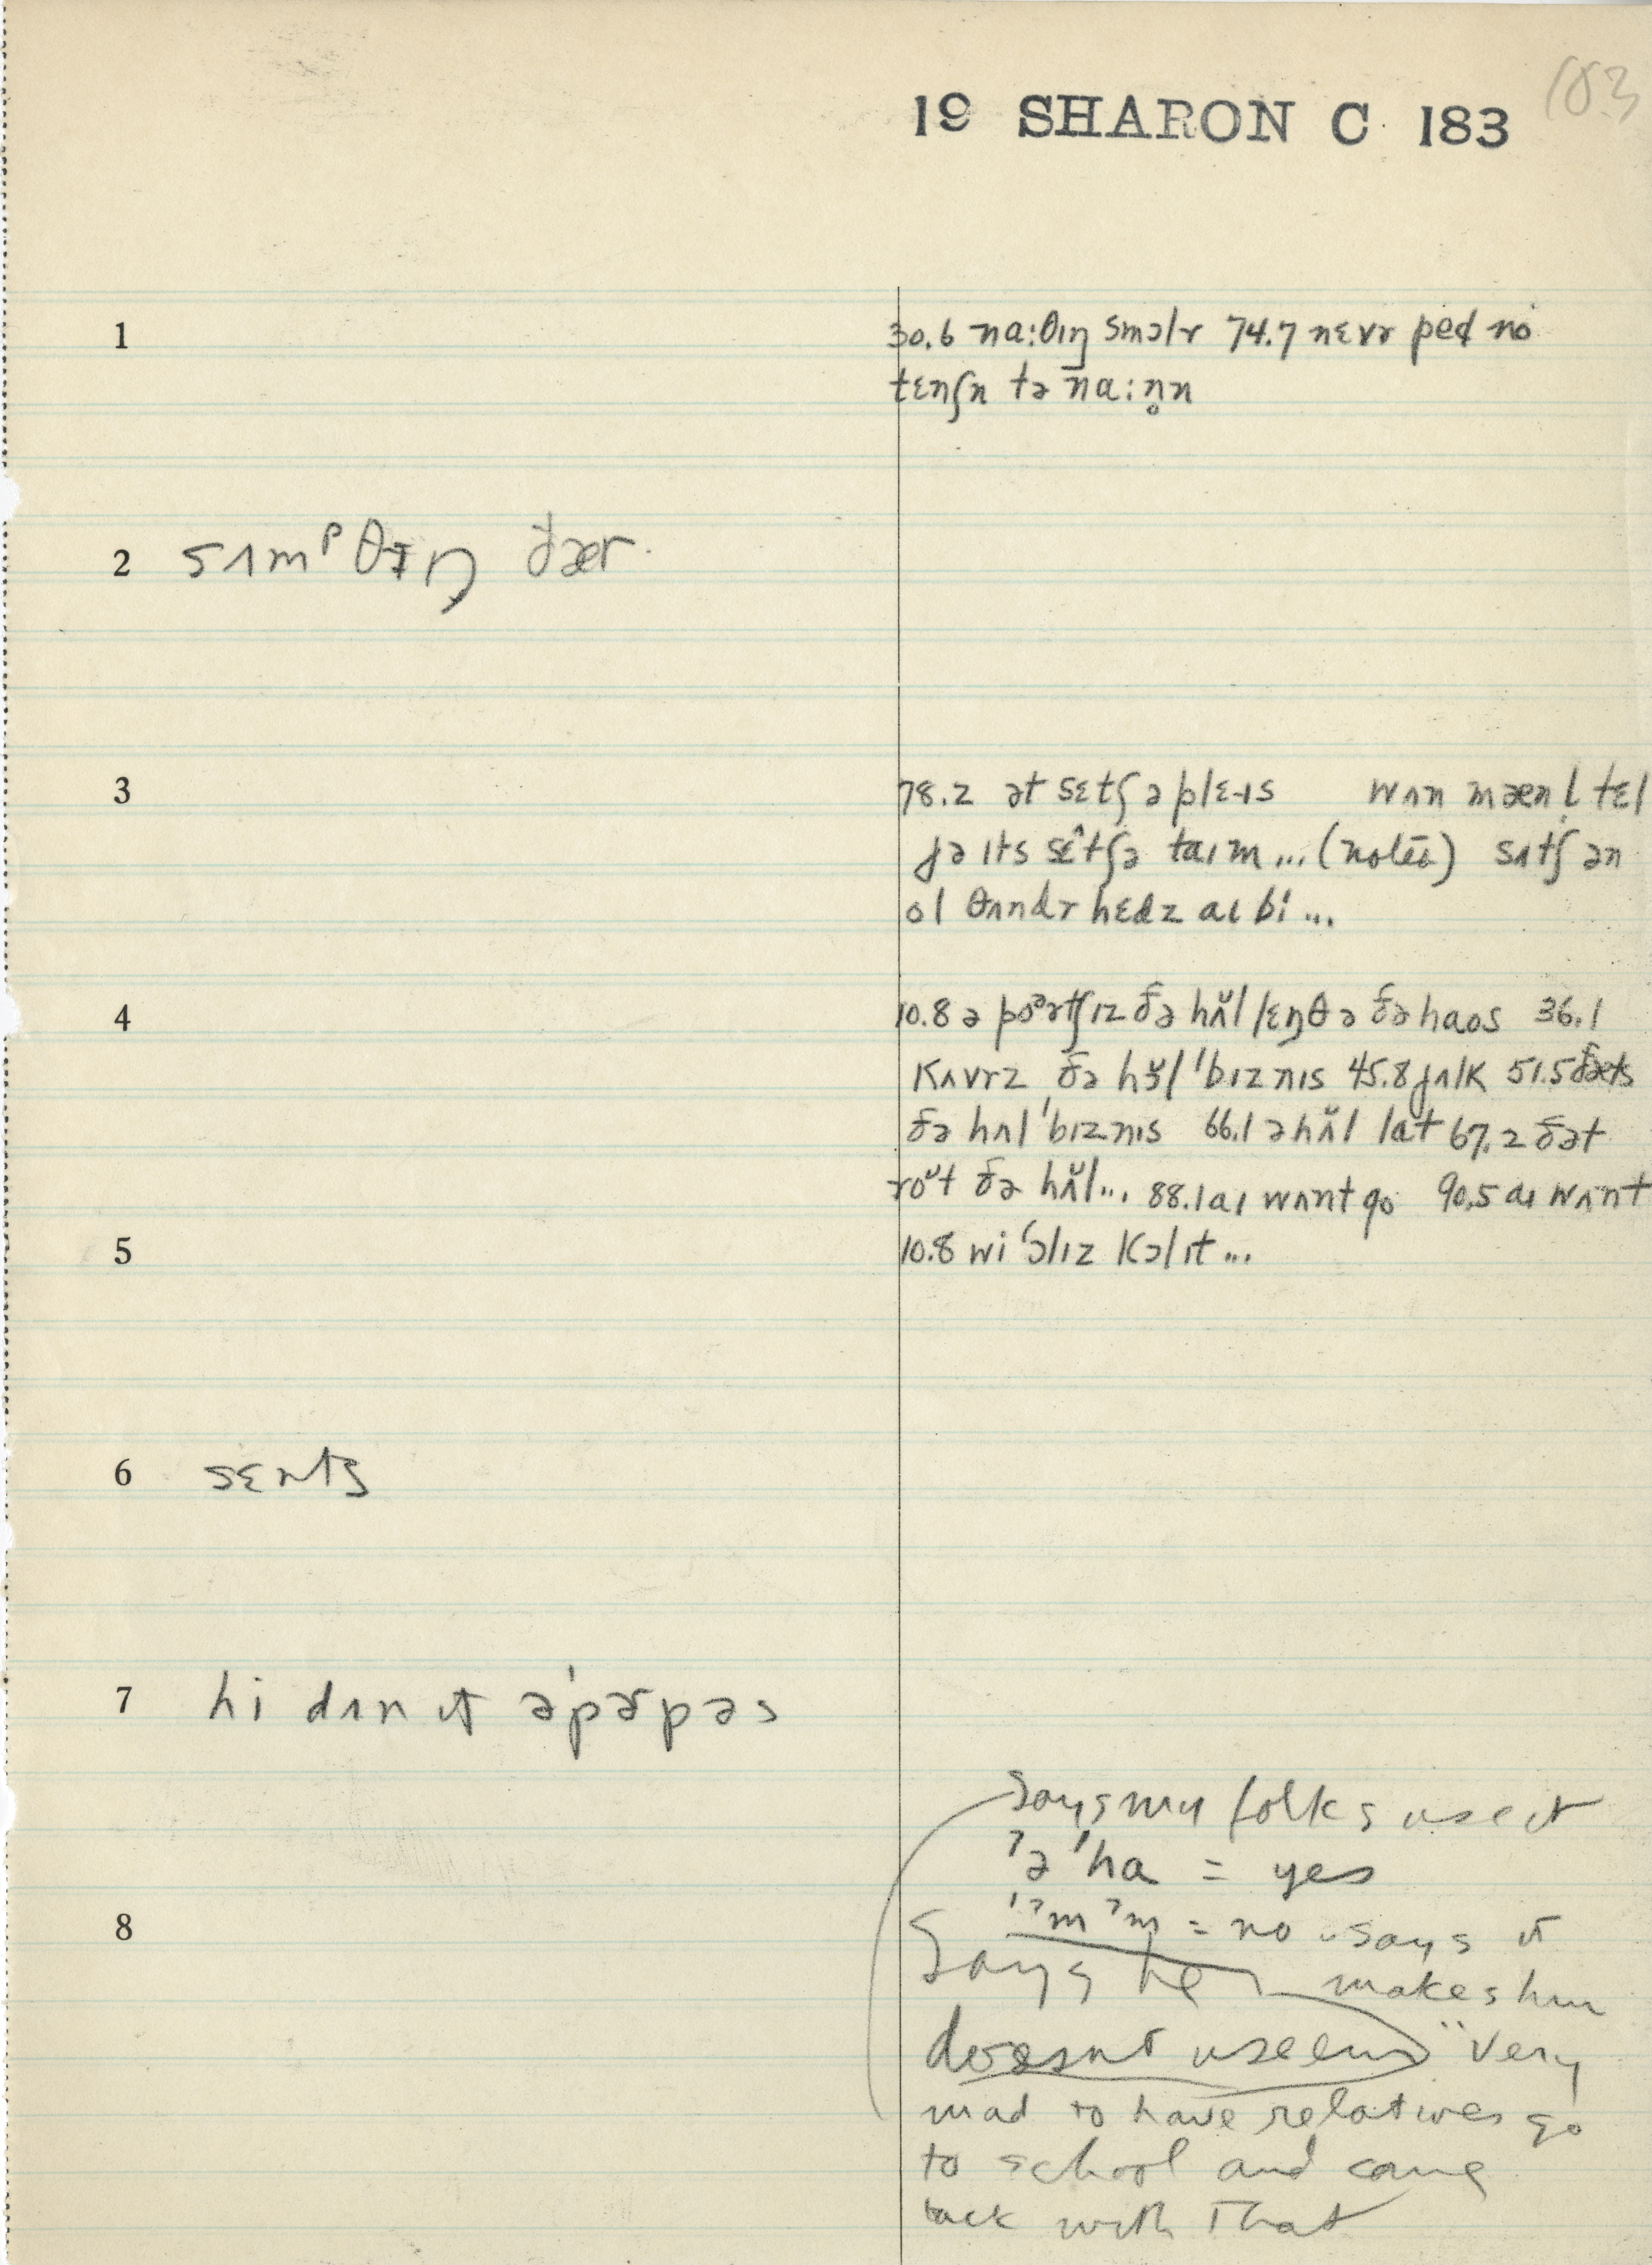 183
19 SHARON C 183
1
30.6 na:θɪŋ smɔlɤ 74.7 nɛvɤ ped no
tɛnʃn tə na:n̥n
2 sʌmᵖθɪŋ ðær
3
78.2 ət sɛtʃ ə plɛɪs wʌn mæn l̩ tɛl
jə ɪts sɛ̂tʃə taɪm ... (notes) sʌtʃ ən
ol θʌndɤ hɛdz aɪ bi ...
4
10.8 ə poᵊrtʃɪz ðə hʌ̆l lɛŋθ ə ðə haos 36.1
kʌvɤz ðə hɜ̆l 'bɪznɪs 45.8 jʌlk 51.5 ðæts
ðə hʌl 'bɪznɪs 66.1 ə hʌ̆l lat 67.2 ðət
roᵘt ðə hʌ̆l... 88.1 aɪ wʌnt go 90.5 aɪ wʌnt
5
10.8 wi 'ɔlɪz kɔl ɪt ...
6 sɛnts
7 hi dʌn ɪt ə'pɝpəs
says my folks use it
'ʔə 'ha = yes
8
'ʔm ʔm = no says it
Says he makes him
doesnt use em very
mad to have relatives go
to school and come
back with that